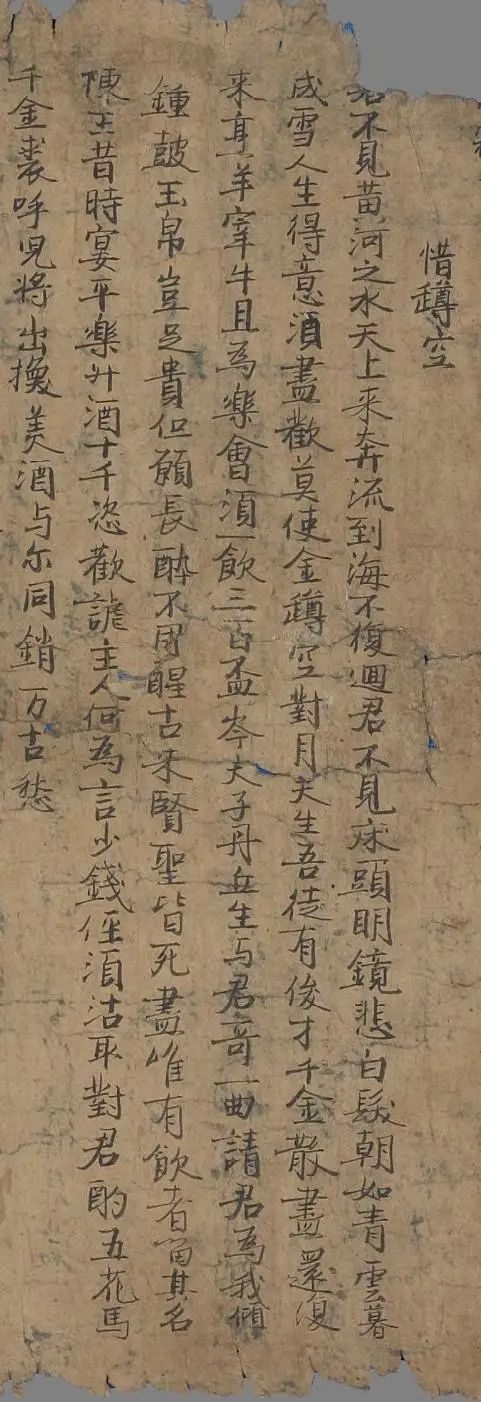 惜罇空
君不見黄河之水天上来奔流到海不復迴君不見床頭明鏡悲白髮朝如青雲暮
成雪人生得意酒盡歡莫使金罇空對月天生吾徒有俊才千金散盡還復
来烹羊宰牛且為樂會須一飲三百盃岑夫子丹丘生与君哥一曲請君為我傾
鍾皷玉帛豈足貴但願長酔不用醒古来賢聖皆死盡唯有飲者留其名
陳王昔時宴平樂斗酒十千恣歡謔主人何為言少錢俓須沽取對君酌五花馬
千金裘呼児將出換美酒与尓同銷万古愁